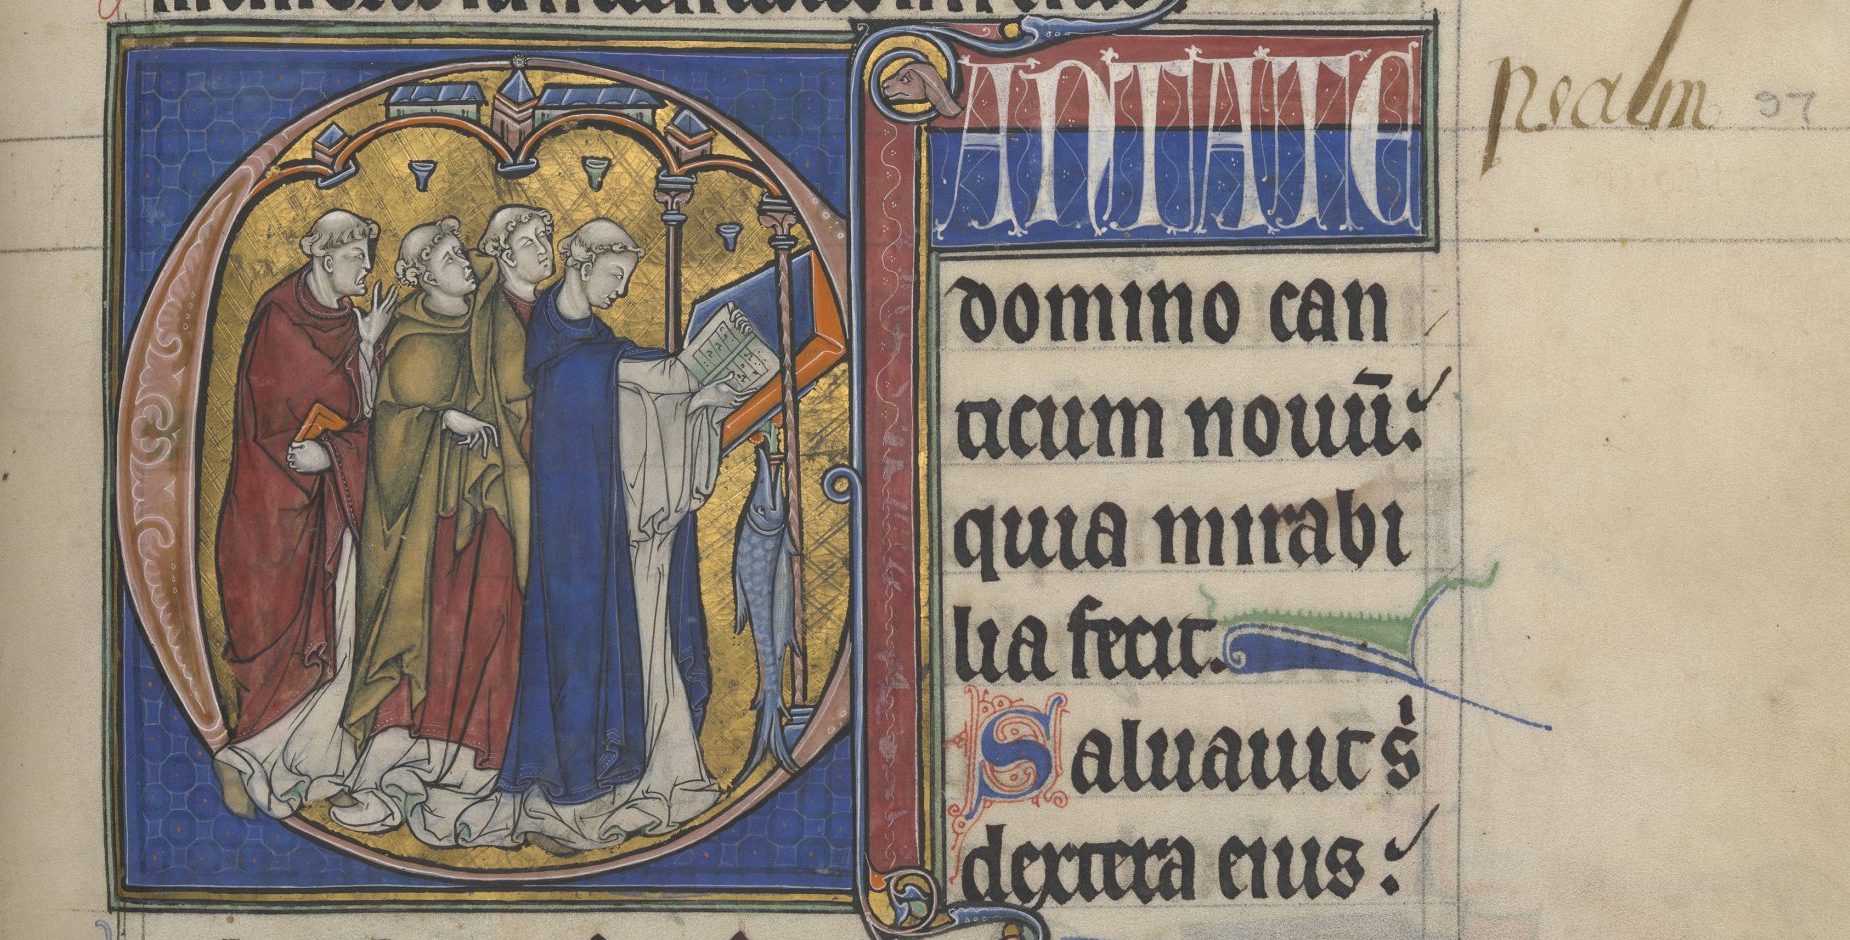 CANTATE
domino can
ticum nouū.
quia mirabi
lia fecit.
Saluauit s̓
dextera eius:
psalm 97